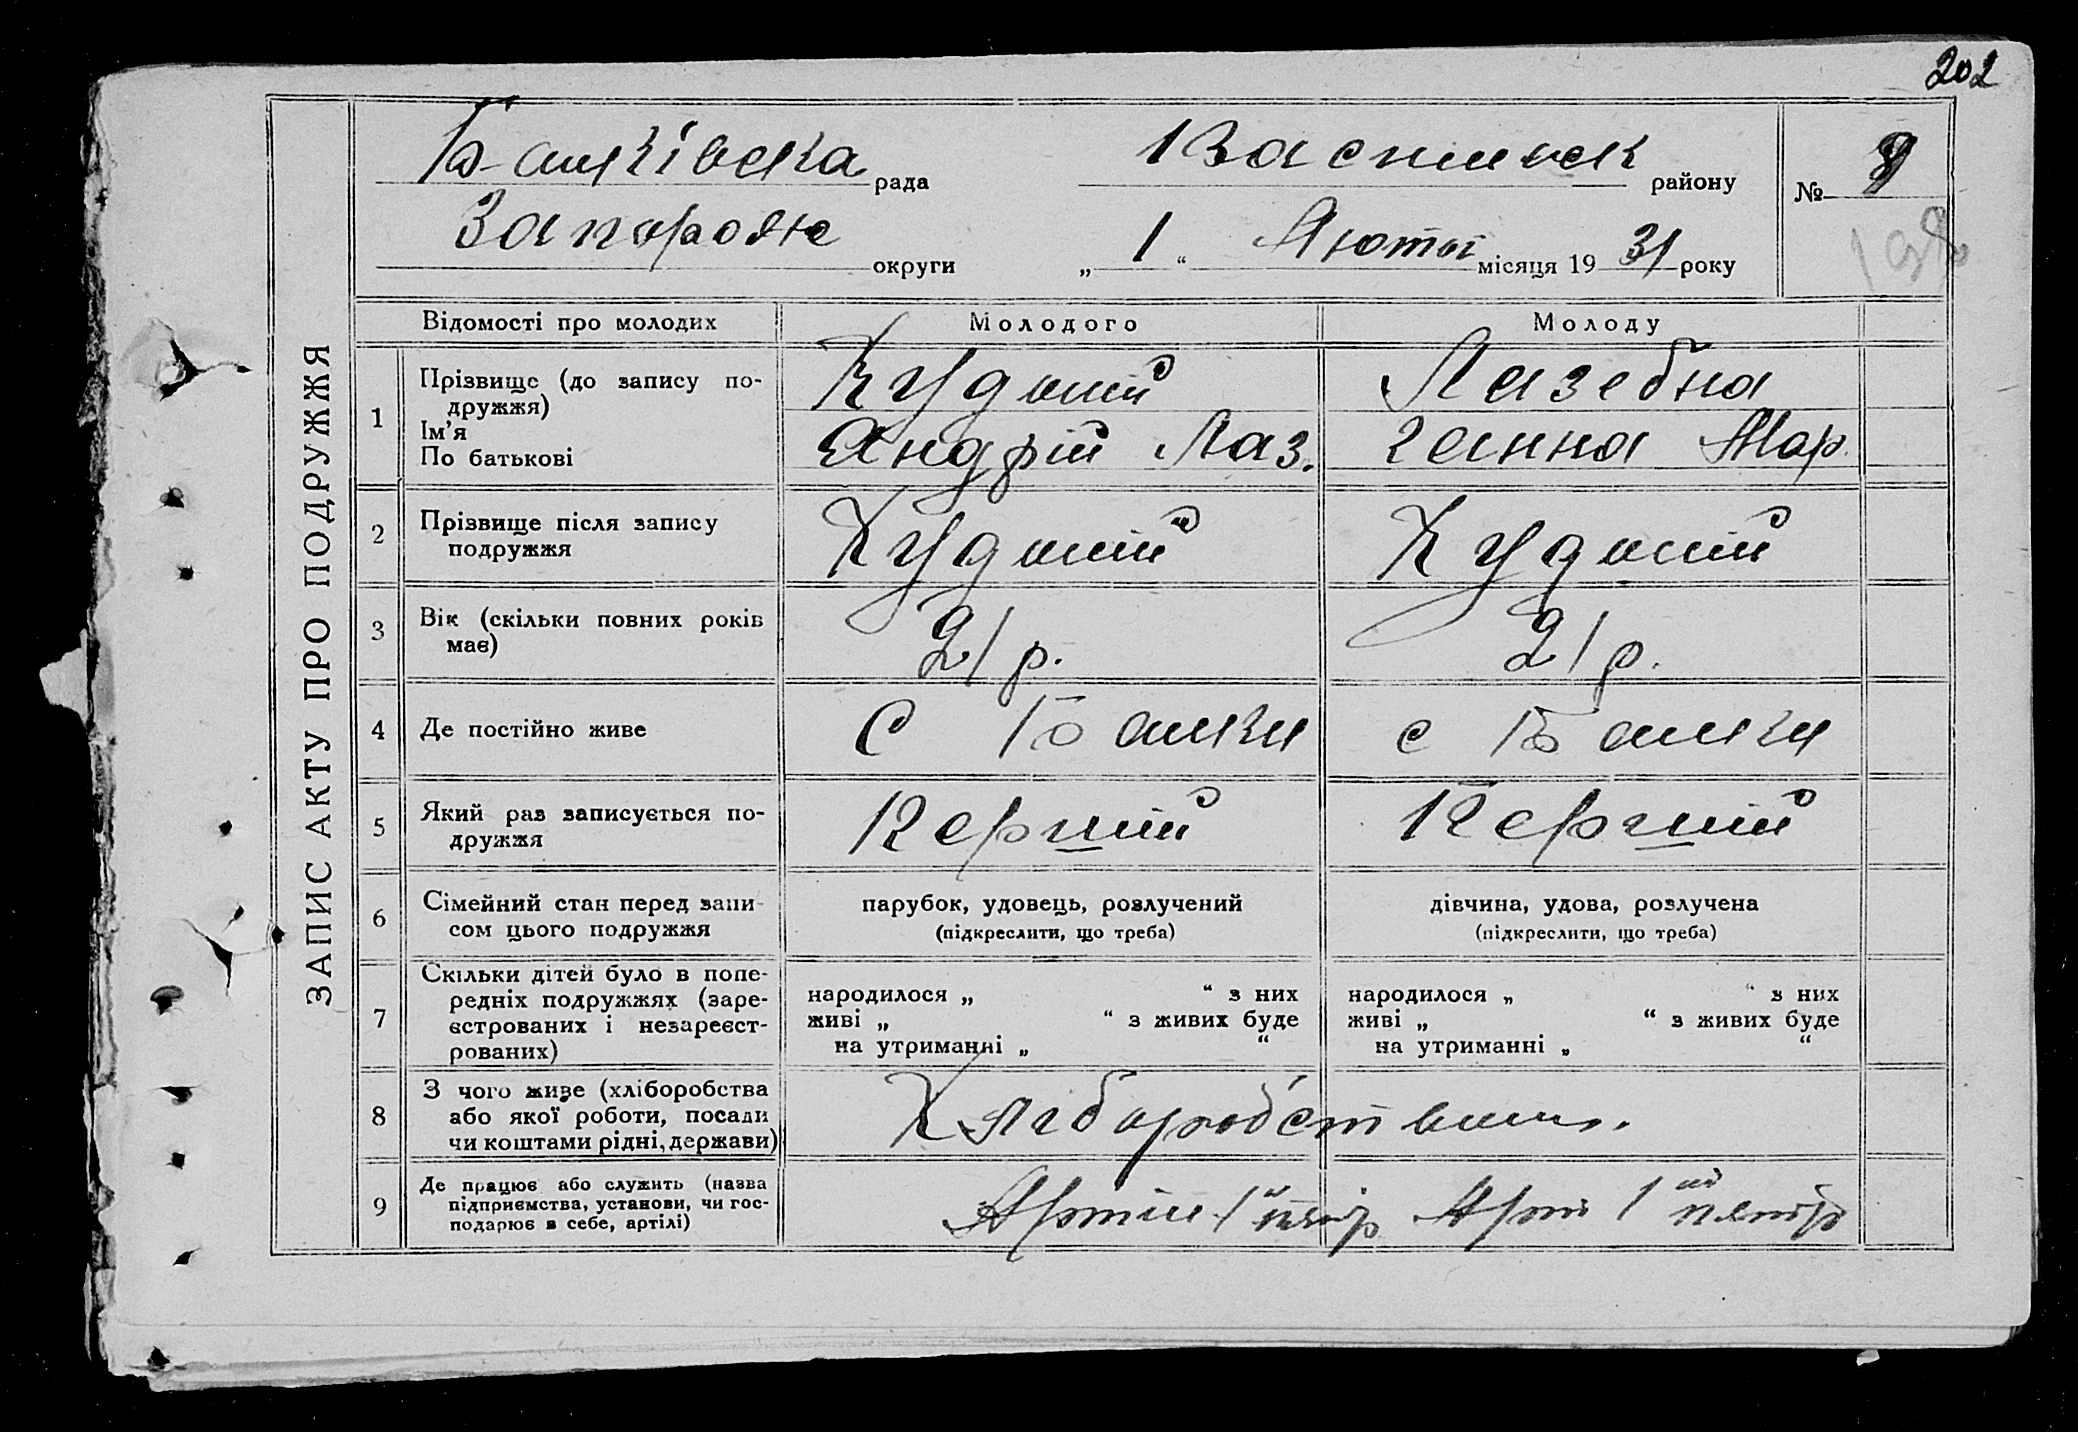 202
Балківська рада Васильвск району № 8
Запоріж округи „ 1 “ Лютого місяця 19 31 року
ЗАПИС АКТУ ПРО ПОДРУЖЖЯ
Відомості про молодих Молодого Молоду
1 Прізвище (до запису по-
дружжя) Кудний Лазебна
Ім'я
По батькові Андрій Лаз. Ганна Мар.
2 Прізвище після запису
подружжя
3 Вік (скільки повних років
має) 21 р. 21 р.
4 Де постійно живе С Балки с Балки
5 Який раз записується по-
дружжя Перший Перший
6 Сімейний стан перед запи-
сом цього подружжя
парубок, удовець, розлучений дівчина, удова, розлучена
(підкреслити, що треба) (підкреслити, що треба)
7 Скільки дітей було в попе-
редніх подружжях (заре-
єстрованих і незареєст-
рованих)
народилося „ “ з них народилося „ “ з них
живі „ “ з живих буде живі „ “ з живих буде
на утриманні „ “ на утриманні „ “
8 З чого живе (хліборобства
або якої роботи, посади
чи коштами рідні, держави)
Хліборобством.
9 Де працює або служить (назва
підприємства, установи, чи гос-
подарює в себе, артілі)